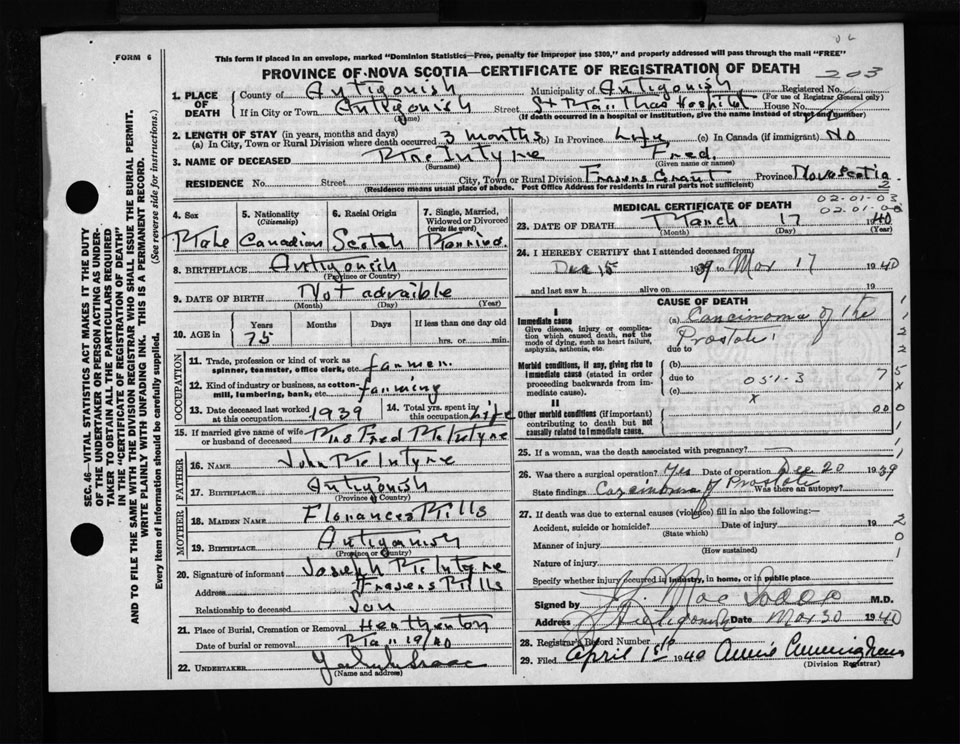 FORM 6
This form if placed in an envelope, marked "Dominion Statistics—Free, penalty for improper use $300," and properly addressed will pass through the mail "FREE"
PROVINCE OF NOVA SCOTIA—CERTIFICATE OF REGISTRATION OF DEATH
203
1. PLACE OF DEATH
County of Antigonish Municipality of Antigonish Registered No.
(For use of Registrar General only)
If in City or Town Antigonish Street St Marthas Hospital House No.
(Name) (If death occurred in a hospital or institution, give the name instead of street and number)
2. LENGTH OF STAY (in years, months and days)
(a) In City, Town or Rural Division where death occurred 3 months (b) In Province Life (c) In Canada (if immigrant) No
3. NAME OF DECEASED MacIntyre Fred.
(Surname) (Given name or names)
RESIDENCE No. Street City, Town or Rural Division Frasers Grant Province Nova Scotia
(Residence means usual place of abode. Post Office Address for residents in rural parts not sufficient)
4. Sex
Male
5. Nationality (Citizenship)
Canadian
6. Racial Origin
Scotch
7. Single, Married, Widowed or Divorced (write the word)
Married
8. BIRTHPLACE Antigonish
(Province or Country)
9. DATE OF BIRTH Not advaible
(Month) (Day) (Year)
10. AGE in Years Months Days If less than one day old
75 hrs. or min.
OCCUPATION
11. Trade, profession or kind of work as spinner, teamster, office clerk, etc. farmer.
12. Kind of industry or business, as cotton-mill, lumbering, bank, etc. farming
13. Date deceased last worked at this occupation 1939
14. Total yrs. spent in this occupation life
15. If married give name of wife or husband of deceased Mrs Fred McIntyre
FATHER
16. NAME John McIntyre
17. BIRTHPLACE Antigonish
(Province or Country)
MOTHER
18. MAIDEN NAME Florances Mills
19. BIRTHPLACE Antigonish
(Province or Country)
20. Signature of informant Joseph McIntyre
Address Frasers Mills
Relationship to deceased Son
21. Place of Burial, Cremation or Removal Heatherton
Date of burial or removal Mar 19/40
22. UNDERTAKER
(Name and address)
MEDICAL CERTIFICATE OF DEATH
02-01-03
23. DATE OF DEATH March 17 1940
(Month) (Day) (Year)
24. I HEREBY CERTIFY that I attended deceased from
Dec 15 1939 to Mar 17 1940
and last saw h alive on 19
CAUSE OF DEATH
I
Immediate cause
Give disease, injury or complication which caused death, not the mode of dying, such as heart failure, asphyxia, asthenia, etc.
(a) Carcinoma of the Prostate
due to
Morbid conditions, if any, giving rise to immediate cause (stated in order proceeding backwards from immediate cause).
(b)
due to 051-3
(c) x
II
Other morbid conditions (if important) contributing to death but not causally related to immediate cause.
25. If a woman, was the death associated with pregnancy?
26. Was there a surgical operation? Yes Date of operation Dec 20 1939
State findings Carcinoma of Prostate Was there an autopsy?
27. If death was due to external causes (violence) fill in also the following:—
Accident, suicide or homicide? Date of injury 19
(State which)
Manner of injury
(How sustained)
Nature of injury
Specify whether injury occurred in industry, in home, or in public place
Signed by M.D.
Address Antigonish Date Mar 30 1940
28. Registrar's Record Number 16
29. Filed April 1st 1940 Annie Cunningham
(Division Registrar)
SEC. 46—VITAL STATISTICS ACT MAKES IT THE DUTY OF THE UNDERTAKER OR PERSON ACTING AS UNDERTAKER TO OBTAIN ALL THE PARTICULARS REQUIRED IN THE "CERTIFICATE OF REGISTRATION OF DEATH"
AND TO FILE THE SAME WITH THE DIVISION REGISTRAR WHO SHALL ISSUE THE BURIAL PERMIT.
WRITE PLAINLY WITH UNFADING INK. THIS IS A PERMANENT RECORD.
Every item of information should be carefully supplied. (See reverse side for instructions.)